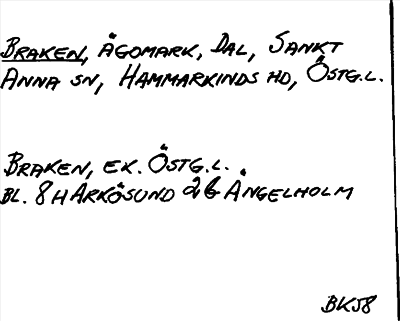 BRAKEN, ÄGOMARK, DAL, SANKT
ANNA SN, HAMMARKINDS HD, ÖSTG.L.
BRAKEN, EK. ÖSTG.L.
BL. 8H ARKÖSUND 2G ÄNGELHOLM
BK58